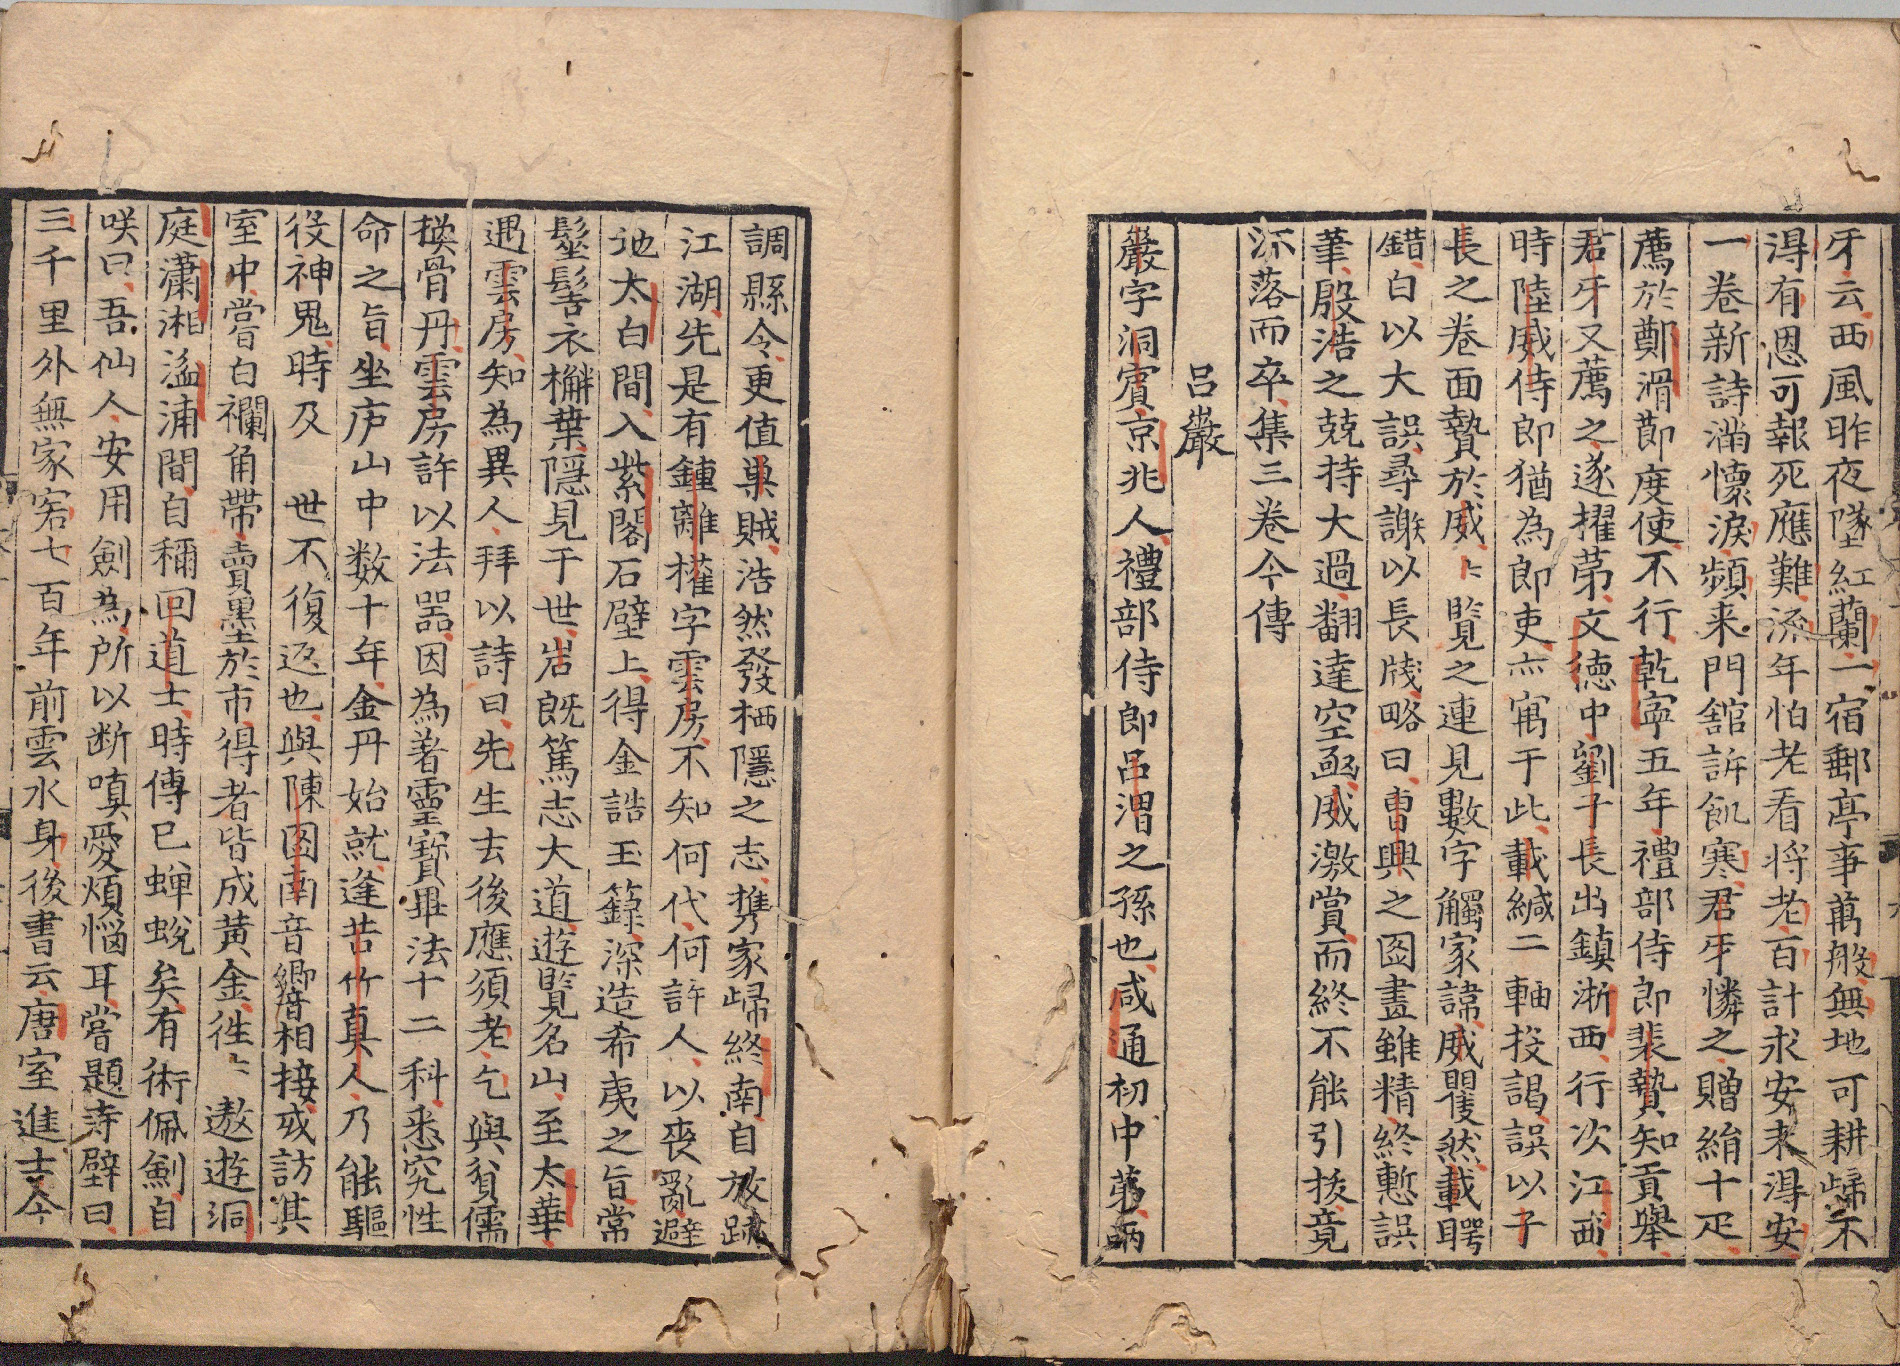 牙云西風昨夜墜紅蘭一宿郵亭事萬般無地可耕歸不
淂有恩可報死應難流年怕老看将老百計求安未淂安
一卷新詩滿懷淚頻来門舘訴飢寒君牙憐之贈絹十疋
薦於鄭滑莭度使不行乾寧五年禮部侍郎裴贄知貢舉
君牙又薦之遂擢苐文徳中劉子長出鎮浙西行次江西
時陸威侍郎猶為郎吏亦寓于此載緘二軸投謁誤以子
長之卷面贄於威〻覽之連見數字觸家諱威矍然載愕
錯白以大誤尋謝以長牋略曰曹興之圖畫雖精終慙誤
筆殷浩之兢持大過翻達空函威激賞而終不能引拔竟
沠落而卒集三卷今傳
呂巖
巖字洞賓京兆人禮部侍郎呂渭之孫也咸通初中苐兩
調縣令更值巢賊浩然發栖隱之志携家歸終南自放跡
江湖先是有鍾離權字雲房不知何代何許人以喪亂避
地太白間入紫閣石壁上得金誥玉籙深造希夷之旨常
髽髻衣槲葉隱見于世岩既篤志大道遊覽名山至太華
遇雲房知為異人拜以詩曰先生去後應須老乞與貧儒
換骨丹雲房許以法器因為著靈寳畢法十二科悉究性
命之旨坐庐山中数十年金丹始就逢苦竹真人乃能驅
役神鬼時及 世不復返也與陳圖南音嚮相接或訪其
室中嘗白襴角帶賣墨於市得者皆成黄金徃〻遨遊洞
庭瀟湘湓浦間自稱回道士時傳已蟬蛻矣有術佩劍自
咲曰吾仙人安用劍為所以断嗔愛煩惱耳嘗題寺壁曰
三千里外無家客七百年前雲水身後書云唐室進士今